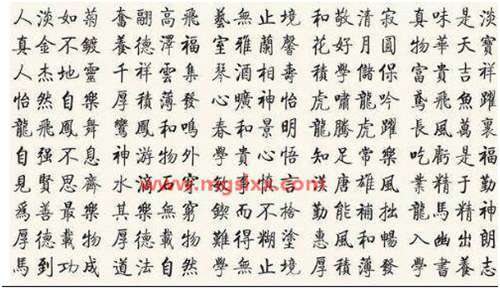 人淡如菊 奮翮高飛 藝無止境 和敬清寂 真味是淡
真金不鍍 養德澤福 室雅蘭馨 花好月圓 物華天寶
人杰地靈 千祥雲集 琴 相壽 學儲 富貴吉祥
怡然自樂 厚積薄發 曠神怡 虎嘯龍吟 鳶飛魚躍
龍飛鳳舞 鸞鳳和鳴 春和景明 龍騰虎躍 長風萬裏
自强不息 神游物外 學貴心悟 知足常樂 吃虧是福
見賢思齊 水滴 穿 慎言 唐雄風 業精于勤
www.mgslxx.com
爲善最樂 其樂無窮 鍥而不捨 勤能補拙 龍馬精神
厚德載物 厚德載物 難得糊塗 惠風和暢 入幽出朗
馬到功成 道法自然 學無止境 厚積薄發 學書養志